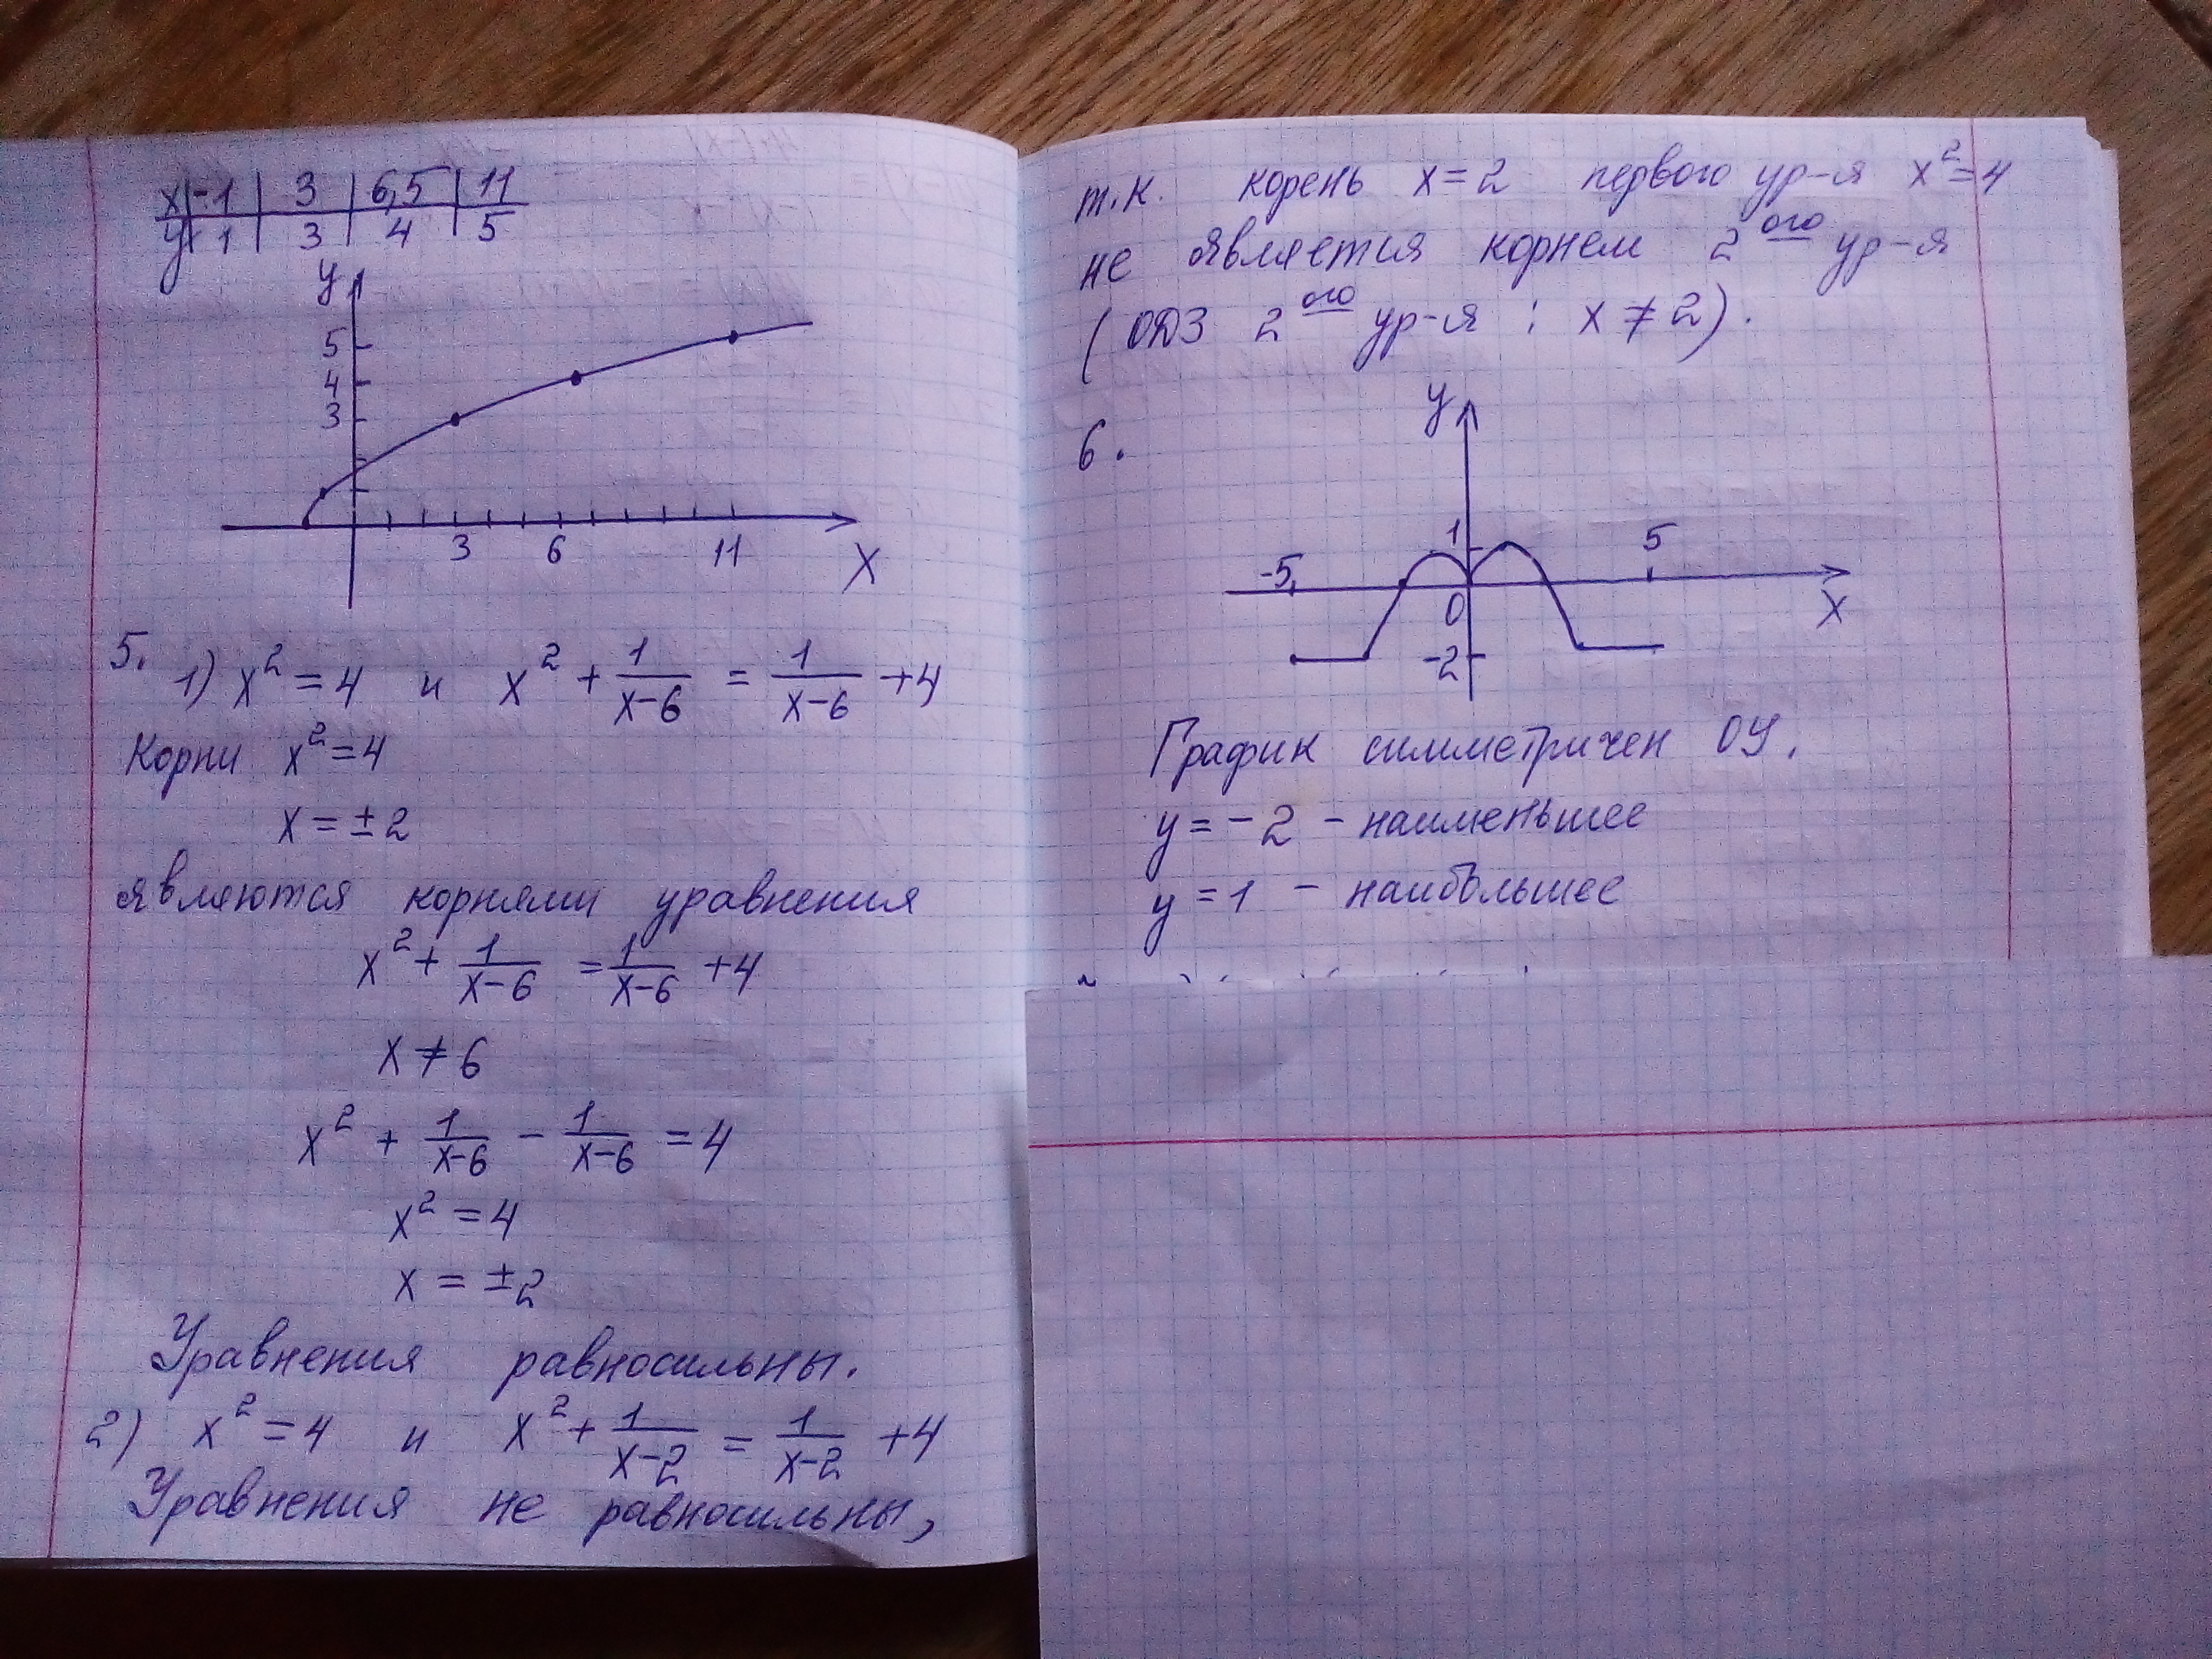 x | -1 | 3 | 6,5 | 11
y | 1 | 3 | 4 | 5
y
5
4
3
3 6 11
X
5. 1) x² = 4 и x² + 1/(x-6) = 1/(x-6) + 4
Корни x² = 4
x = ± 2
являются корнями уравнения
x² + 1/(x-6) = 1/(x-6) + 4
x ≠ 6
x² + 1/(x-6) - 1/(x-6) = 4
x² = 4
x = ±2
Уравнения равносильны.
2) x² = 4 и x² + 1/(x-2) = 1/(x-2) + 4
Уравнения не равносильны,
т.к. корень x = 2 первого ур-я x² = 4
не является корнем 2ого ур-я
(ОДЗ 2ого ур-я : x ≠ 2).
6.
y
1
-5 5
0
X
-2
График симметричен ОУ.
y = -2 - наименьшее
y = 1 - наибольшее